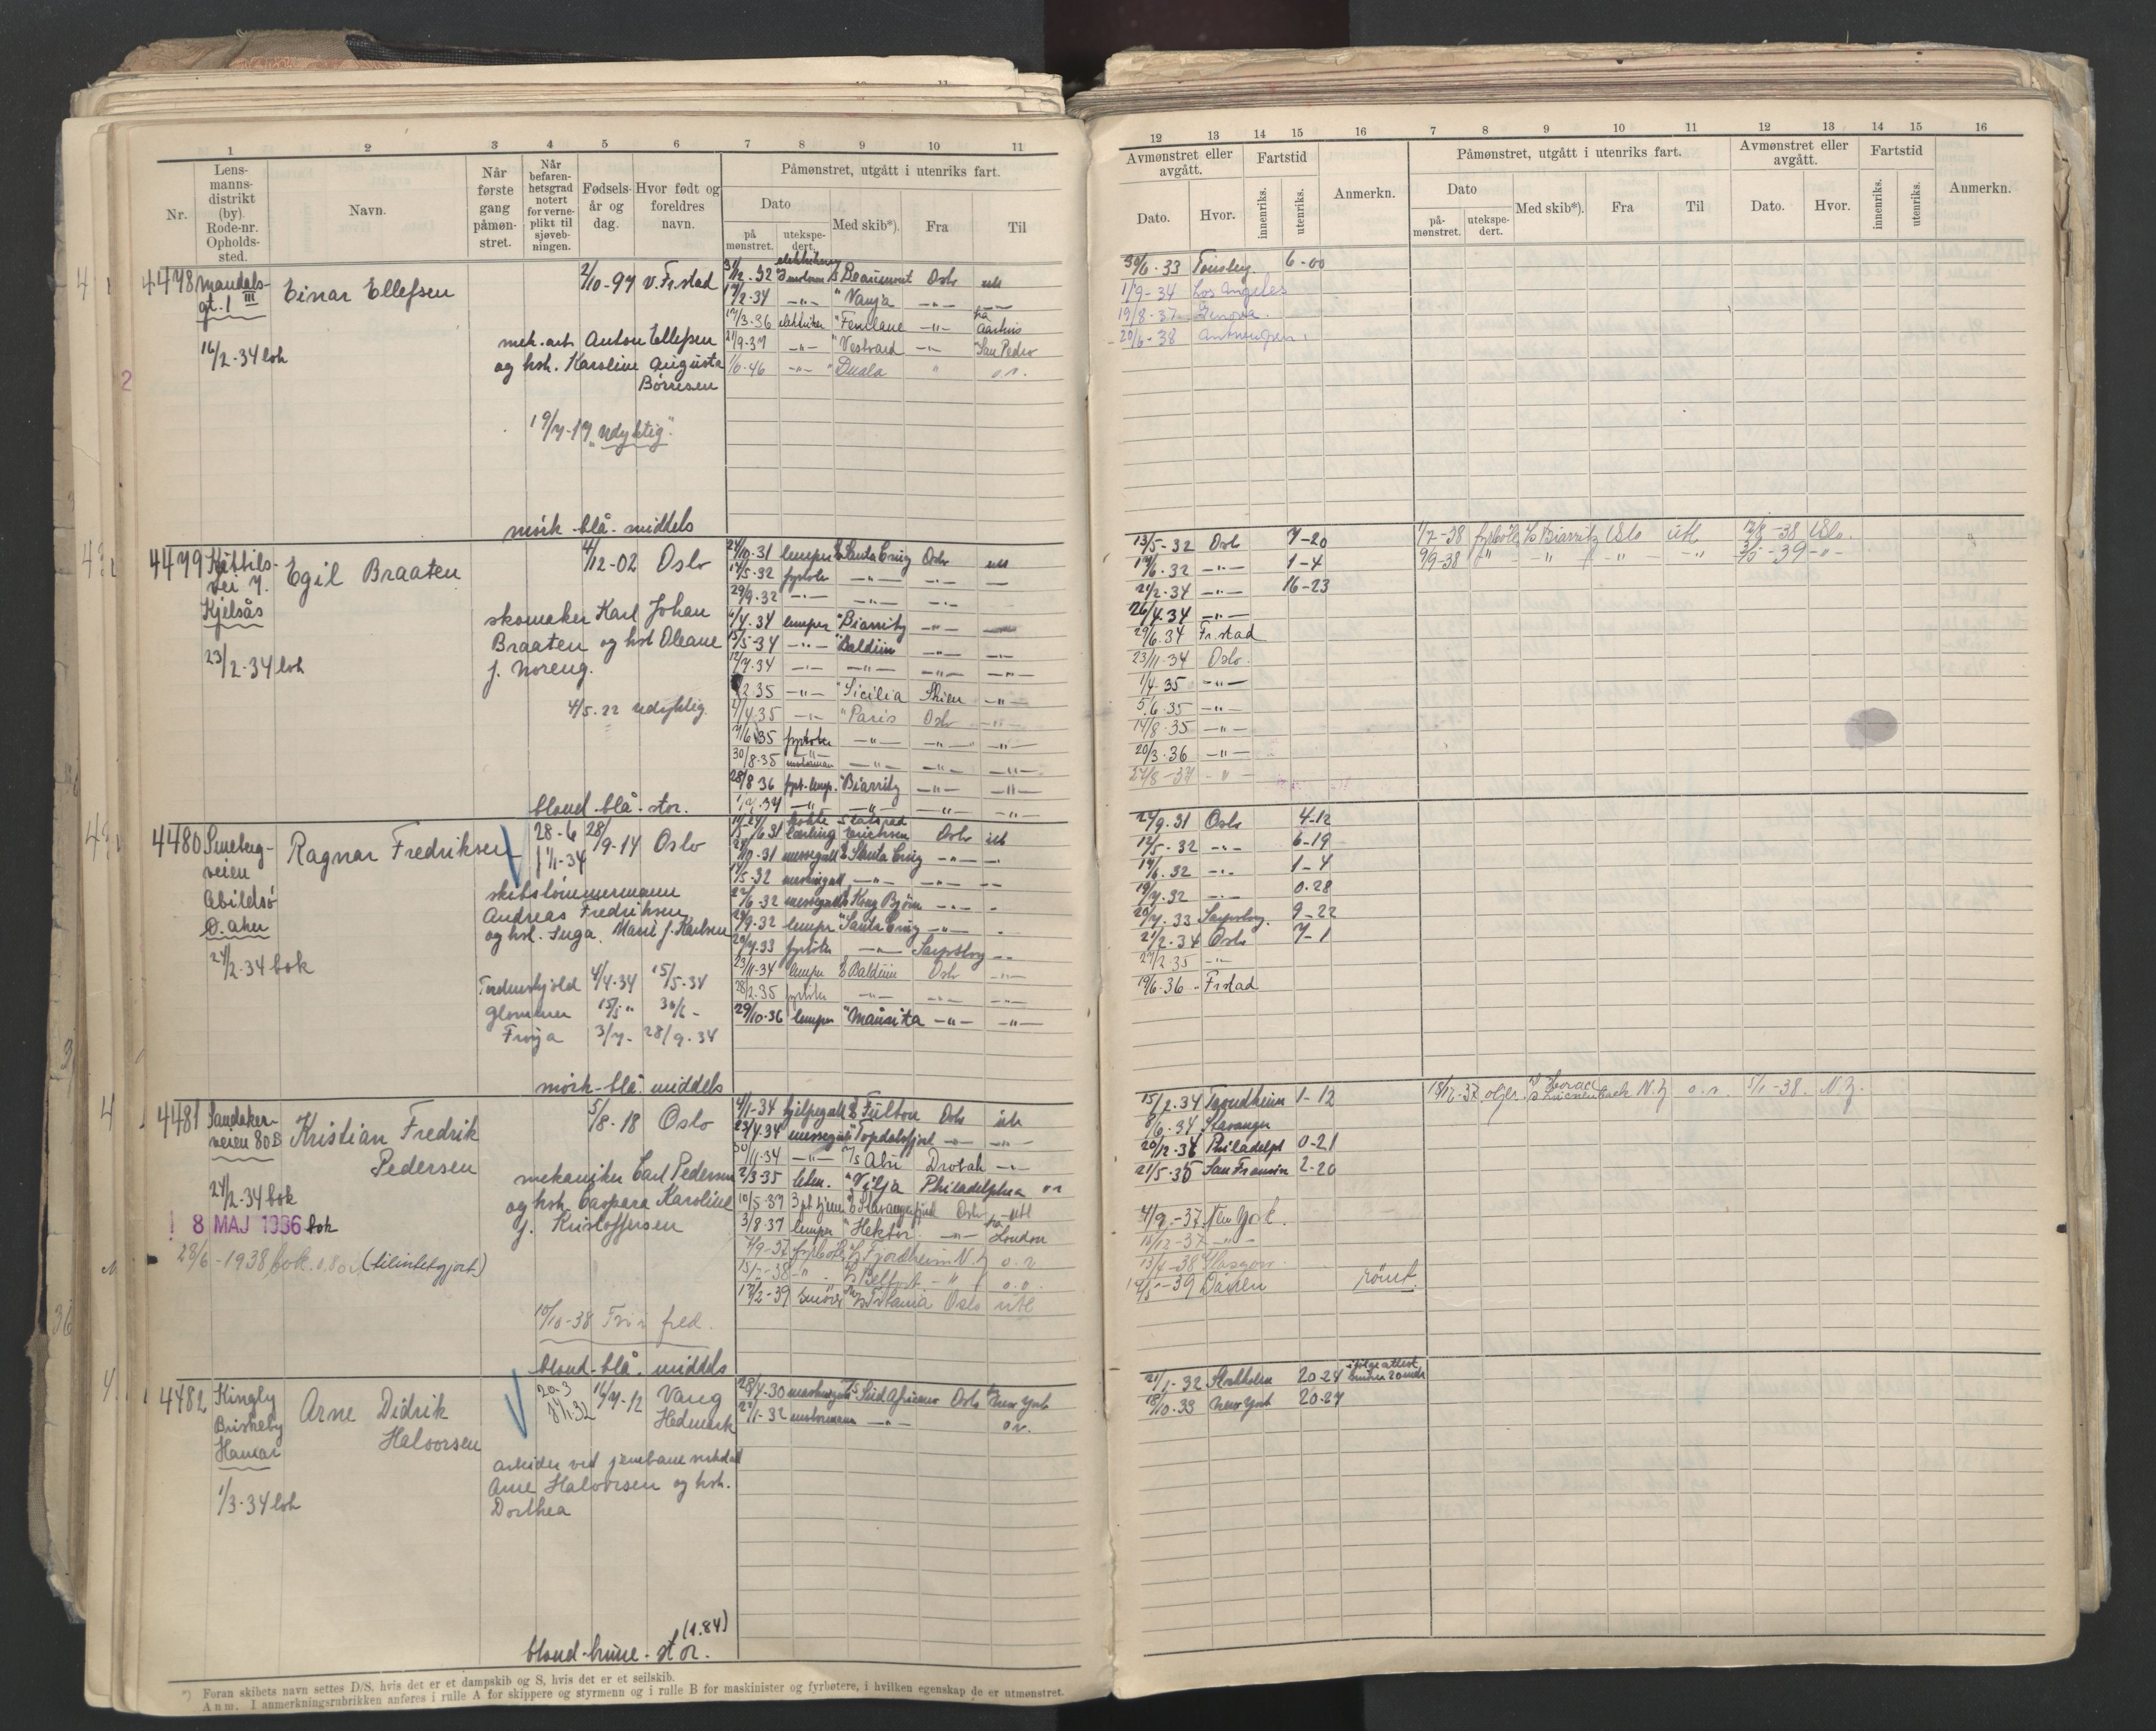 1 2 3 4 5 6 7 8 9 10 11
Nr.
Lens-
manns-
distrikt
(by).
Rode-nr.
Opholds-
sted.
Navn.
Når
første
gang
påmøn-
stret.
Når
befaren-
hetsgrad
notert
for verne-
plikt til
sjøveb-
ningen.
Fødsels-
år og
dag.
Hvor født og
foreldres
navn.
Påmønstret, utgått i utenriks fart.
Dato
på
mønstret.
utekspe-
dert.
Med skib*).
Fra
Til
4478 Mandals-
gt. 1 III
Einar Ellefsen
2/10-97 V. Fr.stad
16/2-34 bok
mek. arb. Anton Ellefsen
og hst. Karoline Augusta
Børresen
19/7-19 "Udyktig".
mørk-blå-middels
31/12-32 Beaumont Oslo utl
17/2-34 -"- " Vanja -"- -"-
17/3-36 elektriker " Fernlane -"- fra Aarhus
21/9-37 -"- " Vestvard -"- "San Pedro
1/6-46 -"- " Duala " o.r.
4479 Kittils-
vei 7.
Kjelsås
Egil Braaten
4/12-02 Oslo
23/2-34 bok
skomaker Karl Johan
Braaten og hst Oleane
f. Noreng.
4/5-22 udyktig.
blond-blå-stor.
24/10-31 lemper Santa Cruz Oslo utl
14/5-32 fyrbøter -"- -"- -
29/9-32 -"- -"- -"-
6/4-34 lemper "Biarritz -"- -
15/5-34 -"- "Balduin -"- -"-
12/7-34 -"- -"- -"- -"-
2-35 -"- "Sicilia Skien -"-
4/4-35 -"- "Paris Oslo -"-
7/6-35 fyrbøter -"- -"- -"-
30/8-35 motorman -"- -"- -"-
28/8-36 fyrb.-lemp. "Biarritz -"- -"-
-"- -"- -"- -"-
4480 Seneberg-
veien
Abildsø
Ø. Aker
Ragnar Fredriksen
28-6
11/1-34
28/9-14 Oslo
24/2-34 bok
skibstømmermann
Andreas Fredriksen
og hst. Inga Marie f. Karlsen
Tordenskjold 4/4-34 15/5-34
Glommen 15/5 " 30/6 -
Frøya 3/7- 28/9-34
mørk-blå-middels
lærling Erichsen Oslo utl
24/10-31 messegutt Santa Cruz -"- -
14/5-32 -"- -"- -"-
22/6-32 messegutt Kong Bjørn -"- -
29/9-32 lemper "Santa Cruz -"- -
20/7-33 fyrbøter -"- Sarpsborg -"-
23/11-34 lemper Balduin Oslo -"-
28/2-35 fyrbøter -"- -"- -"-
29/10-36 lemper "Maurita -"- -"-
4481 Sandaker-
veien 80B
Kristian Fredrik
Pedersen
5/8-18 Oslo
24/2-34 bok
8 MAJ 1936 bok
28/6-1938 bok (tilintetgjort)
mekaniker Carl Pedersen
og hst. Caspara Karoline
f. Kristoffersen
10/10-38 Fri i fred.
blond-blå-middels
4/1-34 hjelpegutt Fulton Oslo utl
23/4-34 messegutt "Topdalsfjord -"- -"-
30/11-34 -"- M/S Abu Drøbak -"-
2/3-35 "Vilja Philadelphia o.r
10/5-37 Stavangerfjord Oslo utl
3/8-37 lemper " Hektor -"- fra London
7/9-37 fyrbøt. Fjordheim N.Y. o.r
15/12-38 -"- Belfast -"- o.r.
17/2-39 smører Titania Oslo utl
4482 Kingly
Briskeby
Hamar
Arne Didrik
Halvorsen
20-3
16/7-12 Vang
Hedmark
1/3-34 bok
arbeider ved jernbane
Arne Halvorsen og hst.
Dorthea
(1.84)
blond-brune-stor.
28/4-30 Sud Africano Oslo New York
22/1-32 motormann -"- o.r.
*) Foran skibets navn settes D/S, hvis det er et dampskib og S, hvis det er et seilskib.
Anm. I anmerkningsrubrikken anføres i rulle A for skippere og styrmenn og i rulle B for maskinister og fyrbøtere, i hvilken egenskap de er utmønstret.
12 13 14 15 16 7 8 9 10 11 12 13 14 15 16
Avmønstret eller
avgått.
Dato.
Hvor.
Fartstid
innenriks.
utenriks.
Anmerkn.
Påmønstret, utgått i utenriks fart.
Dato
på-
mønstret.
utekspe-
dert.
Med skib*).
Fra
Til
Avmønstret eller
avgått.
Dato.
Hvor.
Fartstid
innenriks.
utenriks.
Anmerkn.
30/6-33 Tønsberg. 6-00
1/9-34 Los Angeles
19/8-37 Genova.
20/6-38 Antwerpen.
13/5-32 Oslo 7-20
17/6-32 -"- 1-4
21/2-34 -"- 16-23
26/4-34 -"-
29/6-34 Fr.stad
23/11-34 Oslo.
1/4-35 -"-
5/6-35 -"-
14/8-35 -"-
20/3-36 -"-
27/8-37 -"-
1/7-38 fyrbøt. Biarritz Oslo utl 12/8-38 Oslo.
9/9-38 " -"- -"- -"- 3/5-39 -"-
22/9-31 Oslo 4-12
12/5-32 -"- 6-19
17/6-32 -"- 1-4
19/7-32 -"- 0-28
20/7-33 Sarpsborg. 9-22
21/2-34 Oslo 7-1
27/2-35 -"-
19/6-36 Fr.stad
15/2-34 Trondheim 1-12
8/6-34 Stavanger
20/12-34 Philadelph 0-21
21/5-35 San Francisco 2-20
4/9-37 New York.
15/12-37 -"-
13/4-38 Glasgow
14/5-39 rømt.
18/12-37 N.Y. o.r. 5/1-38. N.Y.
21/1-32 Stockholm 20-24 ifølge attest
18/10-33 New York 20-27